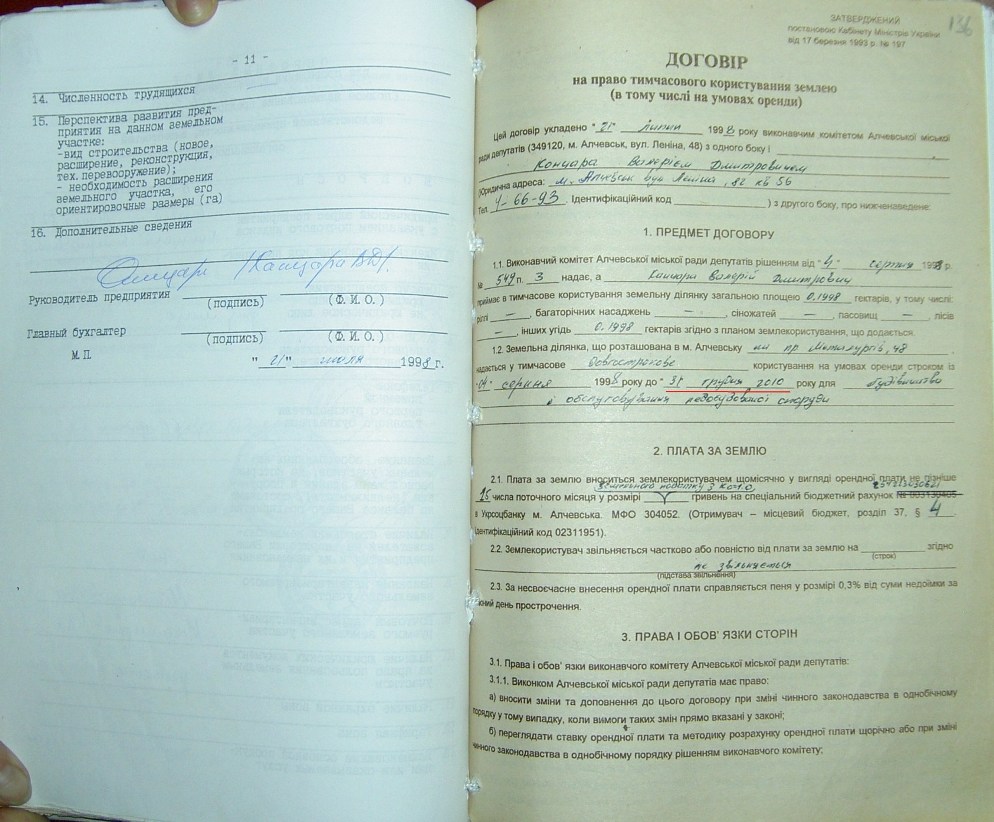 - 11 -
14. Численность трудящихся
15. Перспектива развития пред-
приятия на данном земельном
участке:
-вид строительства (новое,
расширение, реконструкция,
тех.перевооружение);
- необходимость расширения
земельного участка, его
ориентировочные размеры (га)
16. Дополнительные сведения
Руководитель предприятия
(подпись) (Ф.И.О.)
Главный бухгалтер
(подпись) (Ф.И.О.)
М.П.
"21" июля 1998 г.
136
ЗАТВЕРДЖЕНИЙ
постановою Кабінету Міністрів України
від 17 березня 1993 р. № 197
ДОГОВІР
на право тимчасового користування землею
(в тому числі на умовах оренди)
Цей договір укладено " 21 " липня 1998 року виконавчим комітетом Алчевської міської
ради депутатів (349120, м. Алчевськ, вул. Леніна, 48) з одного боку і
Концара Валерієм Дмитровичем
Юридична адреса: м. Алчевськ вул Леніна, 82 кв 56
Тел. 4-66-93. Ідентифікаційний код ) з другого боку, про нижченаведене:
1. ПРЕДМЕТ ДОГОВОРУ
1.1. Виконавчий комітет Алчевської міської ради депутатів рішенням від "4" серпня 1998 р
№ 549 п. 3 надає, а Концара Валерій Дмитрович
приймає в тимчасове користування земельну ділянку загальною площею 0.1998 гектарів, у тому числі:
ріллі — , багаторічних насаджень — , сіножатей — , пасовищ — , лісів
— , інших угідь 0.1998 гектарів згідно з планом землекористування, що додається.
1.2. Земельна ділянка, що розташована в м. Алчевську по пр Металургів, 48
надається у тимчасове Довгострокове користування на умовах оренди строком із
"04" серпня 1998 року до " 31 грудня 2010 року для будівництва
і обслуговування недобудованої споруди
2. ПЛАТА ЗА ЗЕМЛЮ
2.1. Плата за землю вноситься землекористувачем щомісячно у вигляді орендної плати не пізніше
земельного податку з
15 числа поточного місяця у розмірі гривень на спеціальний бюджетний рахунок
в Укрсоцбанку м. Алчевська. МФО 304052. (Отримувач – місцевий бюджет, розділ 37, § 4
ідентифікаційний код 02311951).
2.2. Землекористувач звільняється частково або повністю від плати за землю на згідно
(строк)
не звільняється
(підстава звільнення)
2.3. За несвоєчасне внесення орендної плати справляється пеня у розмірі 0,3% від суми недоїмки за
кожний день прострочення.
3. ПРАВА І ОБОВ' ЯЗКИ СТОРІН
3.1. Права і обов' язки виконавчого комітету Алчевської міської ради депутатів:
3.1.1. Виконком Алчевської міської ради депутатів має право:
а) вносити зміни та доповнення до цього договору при зміні чинного законодавства в однобічному
порядку у тому випадку, коли вимоги таких змін прямо вказані у законі;
б) переглядати ставку орендної плати та методику розрахунку орендної плати щорічно або при зміні
чинного законодавства в однобічному порядку рішенням виконавчого комітету;